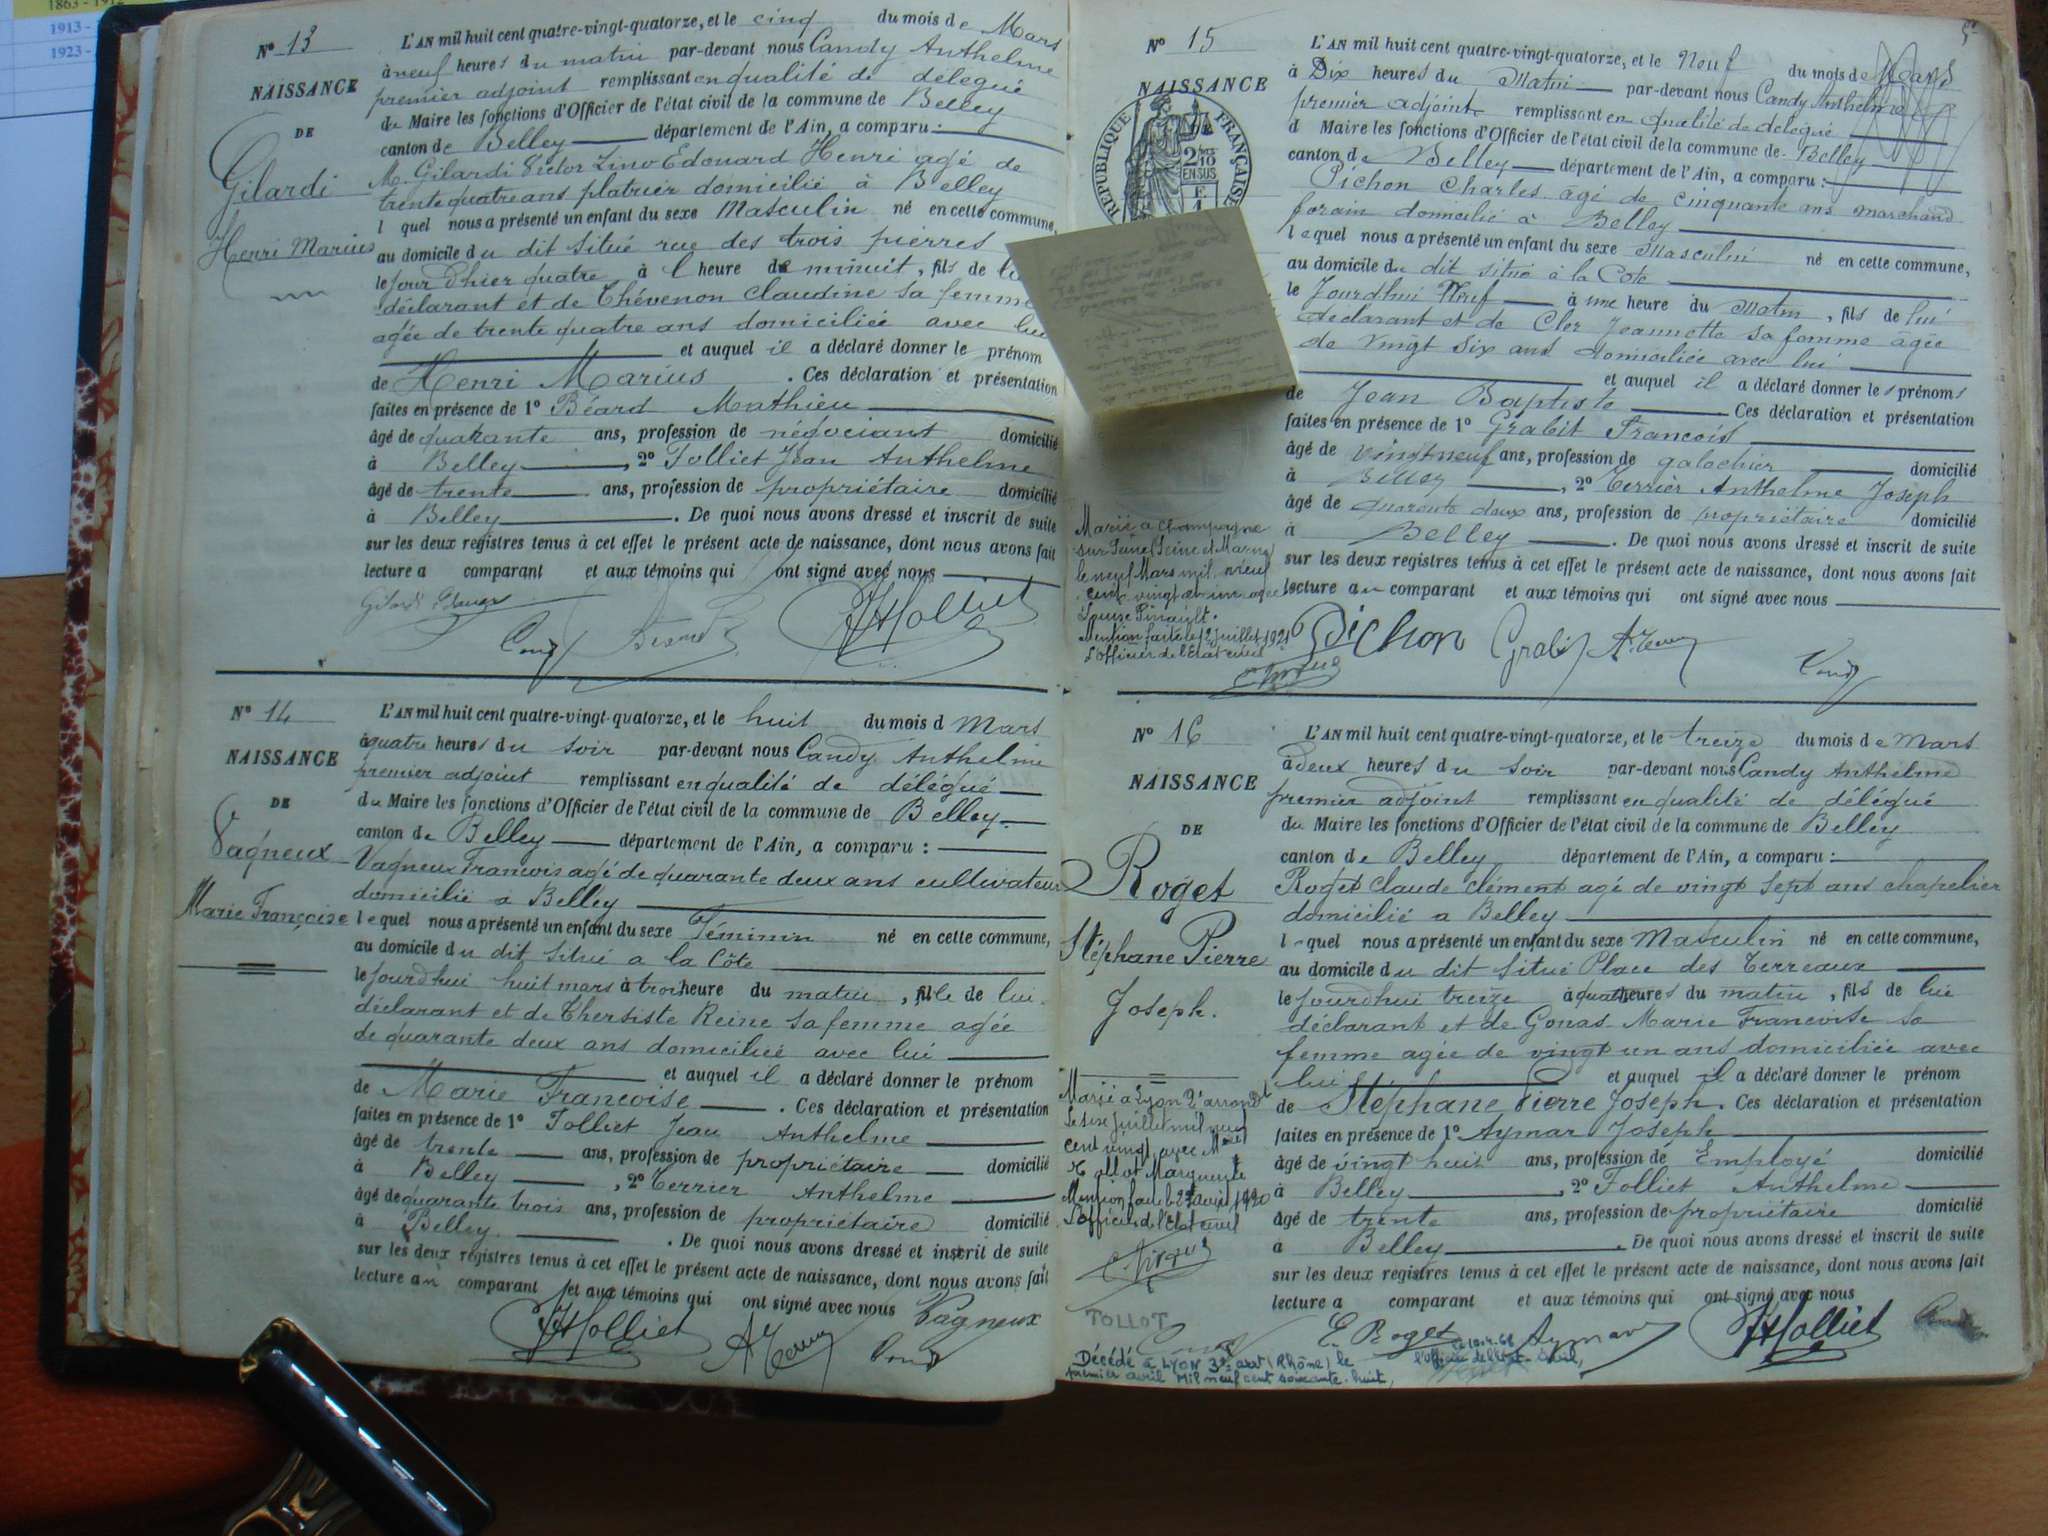 1863 - 1912
1913 -
1923 -
N° 13
NAISSANCE
DE
Gilardi
Henri Marius
L'AN mil huit cent quatre-vingt-quatorze, et le cinq du mois de Mars
à neuf heures du matin par-devant nous Candy Anthelme
premier adjoint remplissant en qualité de délégué
du Maire les fonctions d'Officier de l'état civil de la commune de Belley
canton de Belley département de l'Ain, a comparu :
M. Gilardi Victor Lino Edouard Henri agé de
trente quatre ans platrier domicilié à Belley
l quel nous a présenté un enfant du sexe Masculin né en cette commune,
au domicile du dit situé rue des trois pierres
le jour d'hier quatre à l heure de minuit, fils de
déclarant et de Thévenon Claudine sa femme
agée de trente quatre ans domiciliée avec lui
et auquel il a déclaré donner le prénom
de Henri Marius . Ces déclaration et présentation
faites en présence de 1° Béard Mathieu
âgé de quarante ans, profession de négociant domicilié
à Belley , 2° Folliet Jean Anthelme
âgé de trente ans, profession de propriétaire domicilié
à Belley . De quoi nous avons dressé et inscrit de suite
sur les deux registres tenus à cet effet le présent acte de naissance, dont nous avons fait
lecture a comparant et aux témoins qui ont signé avec nous
N° 14
NAISSANCE
DE
Vagneux
Marie Françoise
L'AN mil huit cent quatre-vingt-quatorze, et le huit du mois d Mars
à quatre heures du soir par-devant nous Candy Anthelme
premier adjoint remplissant en qualité de délégué
du Maire les fonctions d'Officier de l'état civil de la commune de Belley
canton de Belley département de l'Ain, a comparu :
Vagneux Francois agé de quarante deux ans cultivateur
domicilié à Belley
lequel nous a présenté un enfant du sexe Féminin né en cette commune,
au domicile du dit situé a la Côte
le jourdhui huit mars à trois heure du matin, fille de lui
déclarant et de Thersiste Reine sa femme agée
de quarante deux ans domiciliée avec lui
et auquel il a déclaré donner le prénom
de Marie Francoise . Ces déclaration et présentation
faites en présence de 1° Folliet Jean Anthelme
âgé de trente ans, profession de propriétaire domicilié
à Belley , 2° Terrier Anthelme
âgé de quarante trois ans, profession de propriétaire domicilié
à Belley . De quoi nous avons dressé et inscrit de suite
sur les deux registres tenus à cet effet le présent acte de naissance, dont nous avons fait
lecture au comparant et aux témoins qui ont signé avec nous Vagneux
N° 15
NAISSANCE
DE
RÉPUBLIQUE FRANÇAISE
2/10 EN SUS
L'AN mil huit cent quatre-vingt-quatorze, et le Neuf du mois de Mars
à Dix heures du Matin par-devant nous Candy Anthelme
premier adjoint remplissant en qualité de délégué
d Maire les fonctions d'Officier de l'état civil de la commune de Belley
canton de Belley département de l'Ain, a comparu :
Pichon Charles agé de cinquante ans marchand
forain domicilié à Belley
lequel nous a présenté un enfant du sexe Masculin né en cette commune,
au domicile du dit situé à la Cote
le Jourdhui Neuf à une heure du Matin, fils de lui
déclarant et de Cler Jeannette sa femme agée
de vingt six ans domiciliée avec lui
et auquel il a déclaré donner les prénoms
de Jean Baptiste . Ces déclaration et présentation
faites en présence de 1° Grabit Francois
âgé de vingt neuf ans, profession de galochier domicilié
à Belley , 2° Terrier Anthelme Joseph
âgé de quarante deux ans, profession de propriétaire domicilié
à Belley . De quoi nous avons dressé et inscrit de suite
sur les deux registres tenus à cet effet le présent acte de naissance, dont nous avons fait
lecture au comparant et aux témoins qui ont signé avec nous
Marié à Champagne
sur Seine (Seine et Marne)
le neuf Mars mil neuf
cent vingt et un avec
Louise Pinault.
Mention faite le 12 juillet 1921
L'officier de l'Etat civil
Pichon
N° 16
NAISSANCE
DE
Roget
Stéphane Pierre
Joseph.
L'AN mil huit cent quatre-vingt-quatorze, et le treize du mois de Mars
à deux heures du soir par-devant nous Candy Anthelme
premier adjoint remplissant en qualité de délégué
du Maire les fonctions d'Officier de l'état civil de la commune de Belley
canton de Belley département de l'Ain, a comparu :
Roget Claude Clément agé de vingt sept ans chapelier
domicilié a Belley
l quel nous a présenté un enfant du sexe Masculin né en cette commune,
au domicile du dit situé Place des Terreaux
le jourdhui treize à quatre heures du matin, fils de lui
déclarant et de Gonas Marie Francoise sa
femme agée de vingt un ans domiciliée avec
lui et auquel il a déclaré donner le prénom
de Stéphane Pierre Joseph. Ces déclaration et présentation
faites en présence de 1° Aymar Joseph
âgé de vingt huit ans, profession de Employé domicilié
à Belley , 2° Folliet Anthelme
âgé de trente ans, profession de propriétaire domicilié
à Belley . De quoi nous avons dressé et inscrit de suite
sur les deux registres tenus à cet effet le présent acte de naissance, dont nous avons fait
lecture a comparant et aux témoins qui ont signé avec nous
Marié à Lyon 2e arrondt
le juillet mil neuf
cent vingt avec
Tollot Marguerite
Mention faite le 1920
L'officier de l'Etat civil
TOLLOT
E. Roget Aymar
Décédé à LYON 3e arrt (Rhône) le
premier avril Mil neuf cent soixante-huit,
l'officier de l'Etat-Civil,